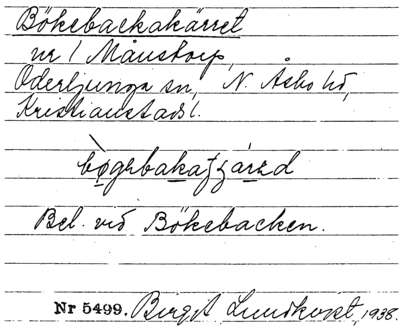 Bökebackakärret
nr 1 Månstorp,
Oderljunga sn, N. Åsbo hd,
Kristianstads l.
Bel. vid Bökebacken.
Nr 5499. Birgit Lundkvist, 1938.